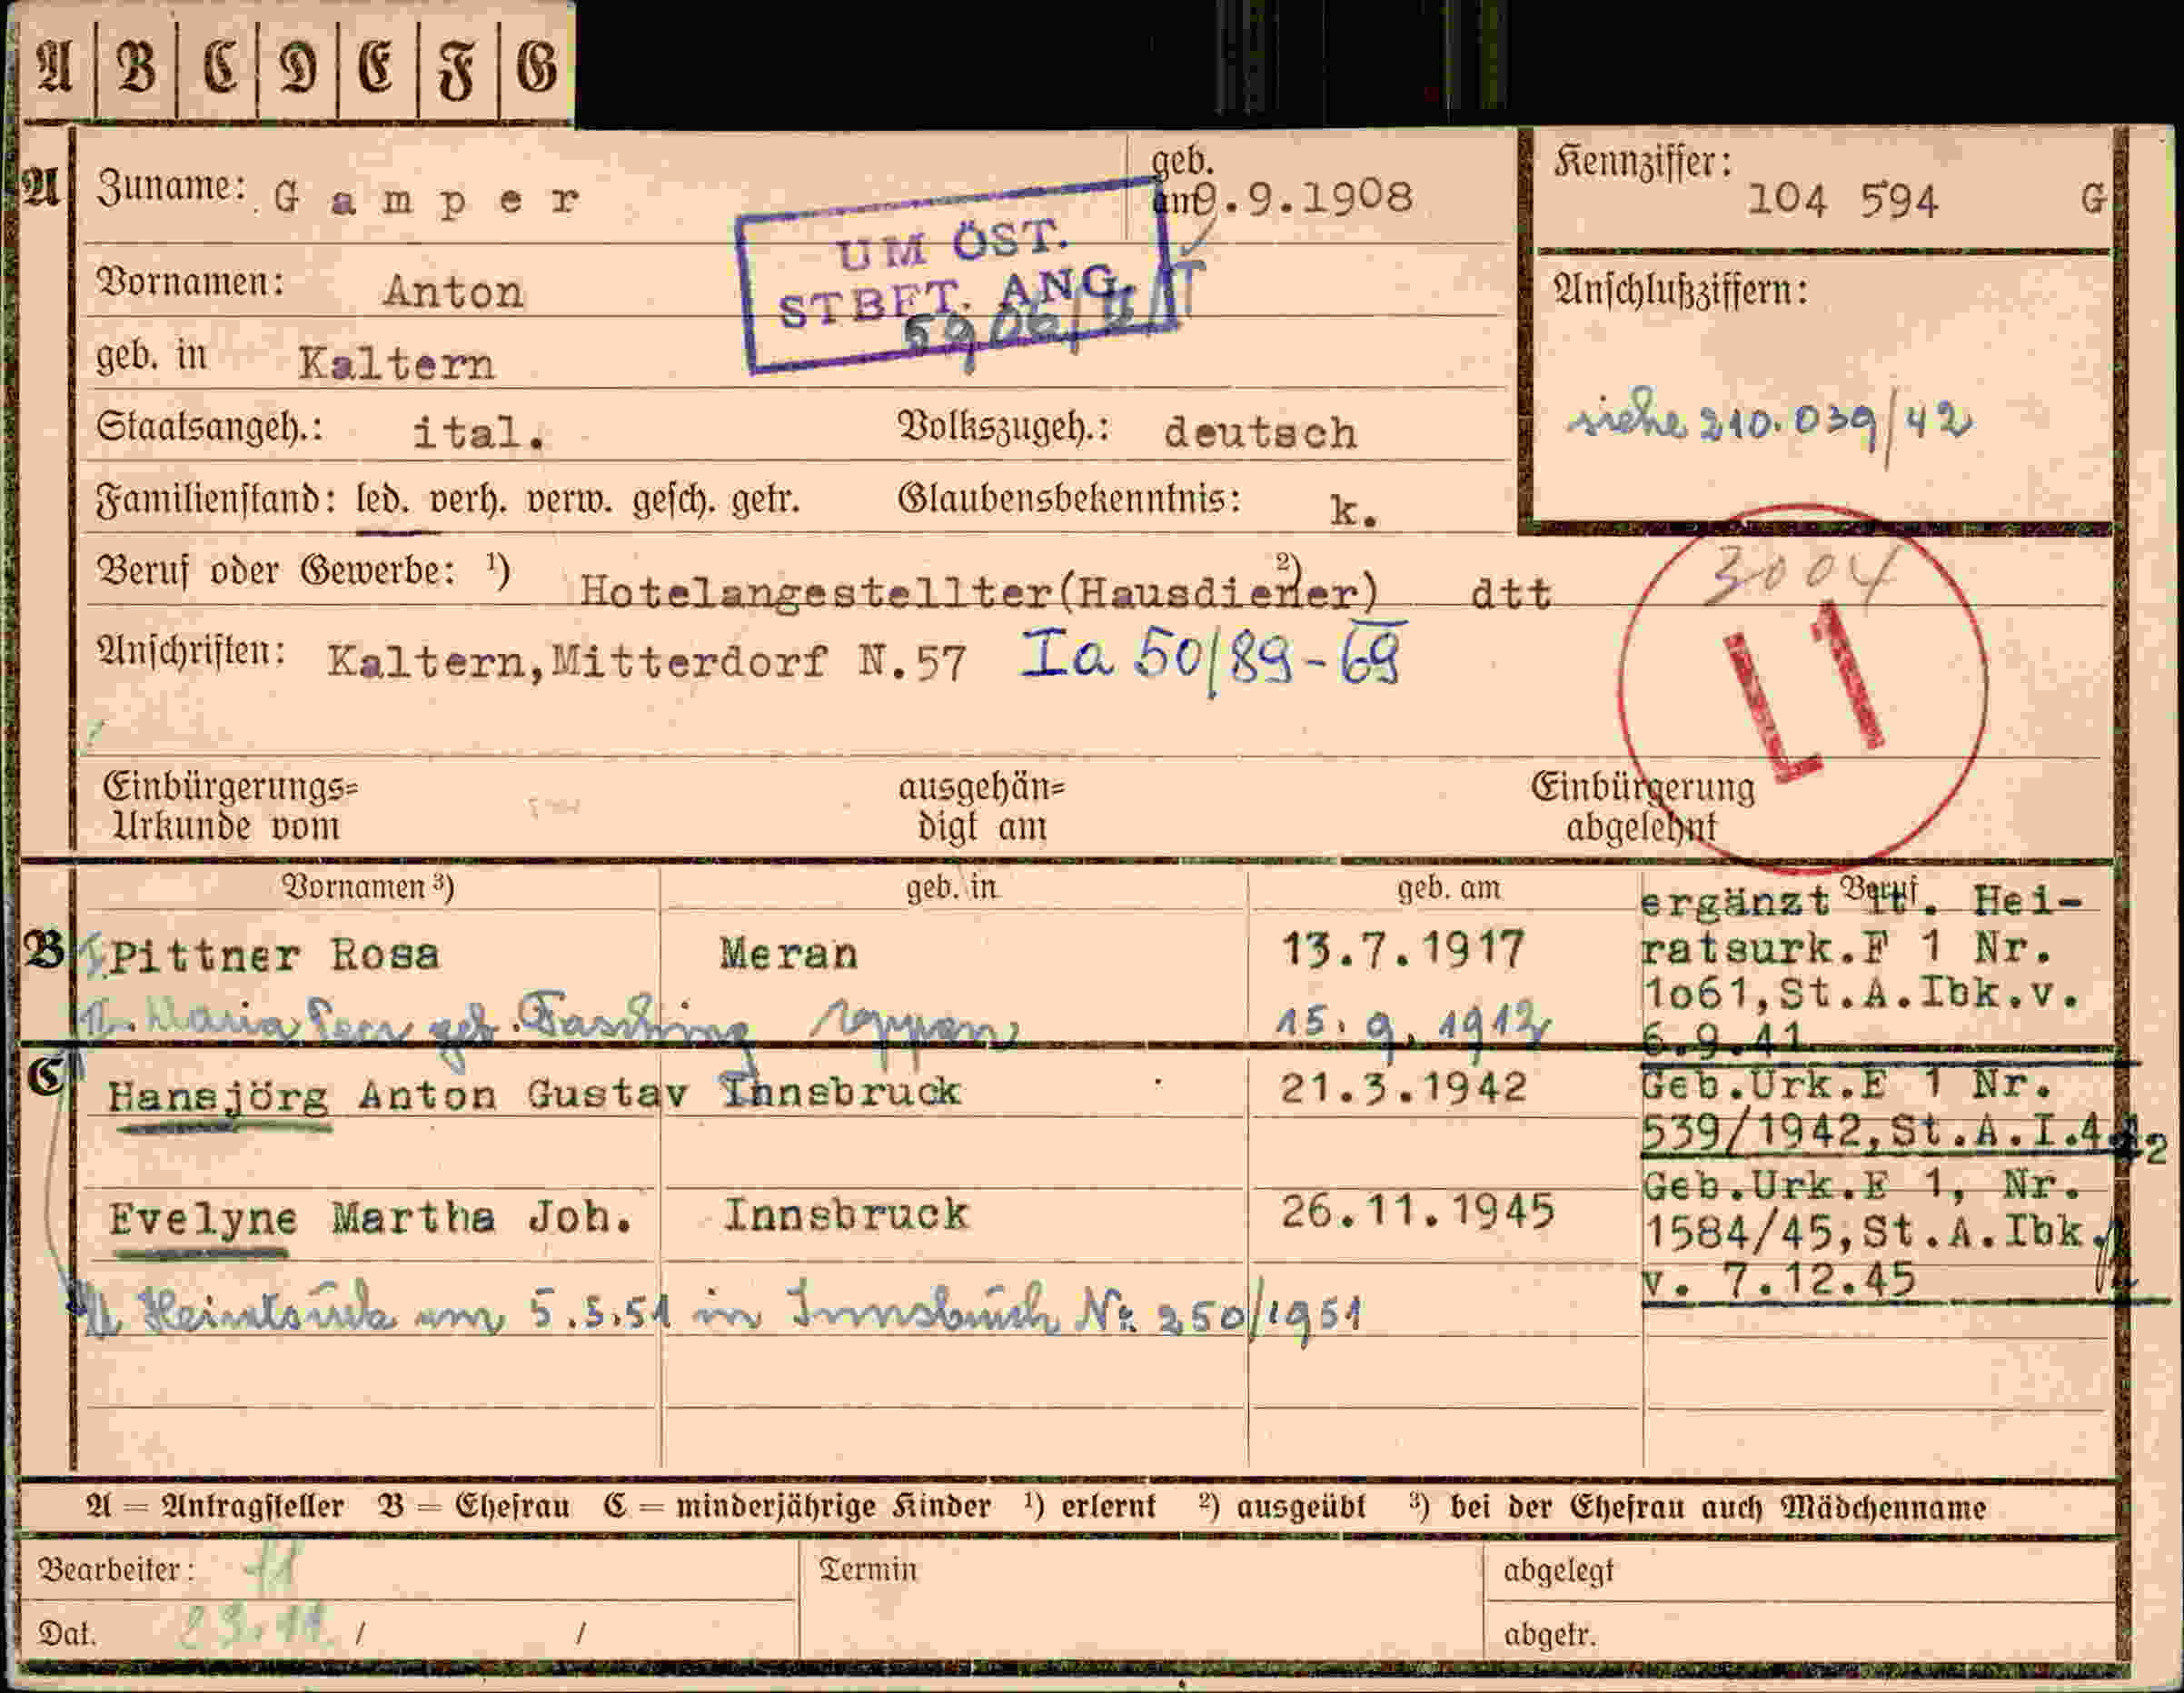 A B C D E F G
A Zuname: G a m p e r geb. am 9.9.1908 Kennziffer: 104 594 G
UM ÖST.
STBFT. ANG.
Vornamen: Anton Anschlußziffern:
geb. in Kaltern
siehe 210.039/42
Staatsangeh.: ital. Volkszugeh.: deutsch
Familienstand: led. verh. verw. gesch. getr. Glaubensbekenntnis: k.
3004
L1
Beruf oder Gewerbe: ¹) Hotelangestellter(Hausdiener) ²) dtt
Anschriften: Kaltern,Mitterdorf N.57 Ia 50/89-69
Einbürgerungs= ausgehän= Einbürgerung
Urkunde vom digt am abgelehnt
Vornamen ³) geb. in geb. am Beruf
ergänzt lt. Hei-
B Pittner Rosa Meran 13.7.1917 ratsurk.F 1 Nr.
1o61,St.A.Ibk.v.
Maria geb. Fasching 15.9.1912 6.9.41
C Hansjörg Anton Gustav Innsbruck 21.3.1942 Geb.Urk.E 1 Nr.
539/1942,St.A.I.4.42
Geb.Urk.E 1, Nr.
Evelyne Martha Joh. Innsbruck 26.11.1945 1584/45,St.A.Ibk.
v. 7.12.45
5.5.51 in Innsbruck Nr. 250/1951
A = Antragsteller B = Ehefrau C = minderjährige Kinder ¹) erlernt ²) ausgeübt ³) bei der Ehefrau auch Mädchenname
Bearbeiter: Termin abgelegt
Dat. / / abgetr.